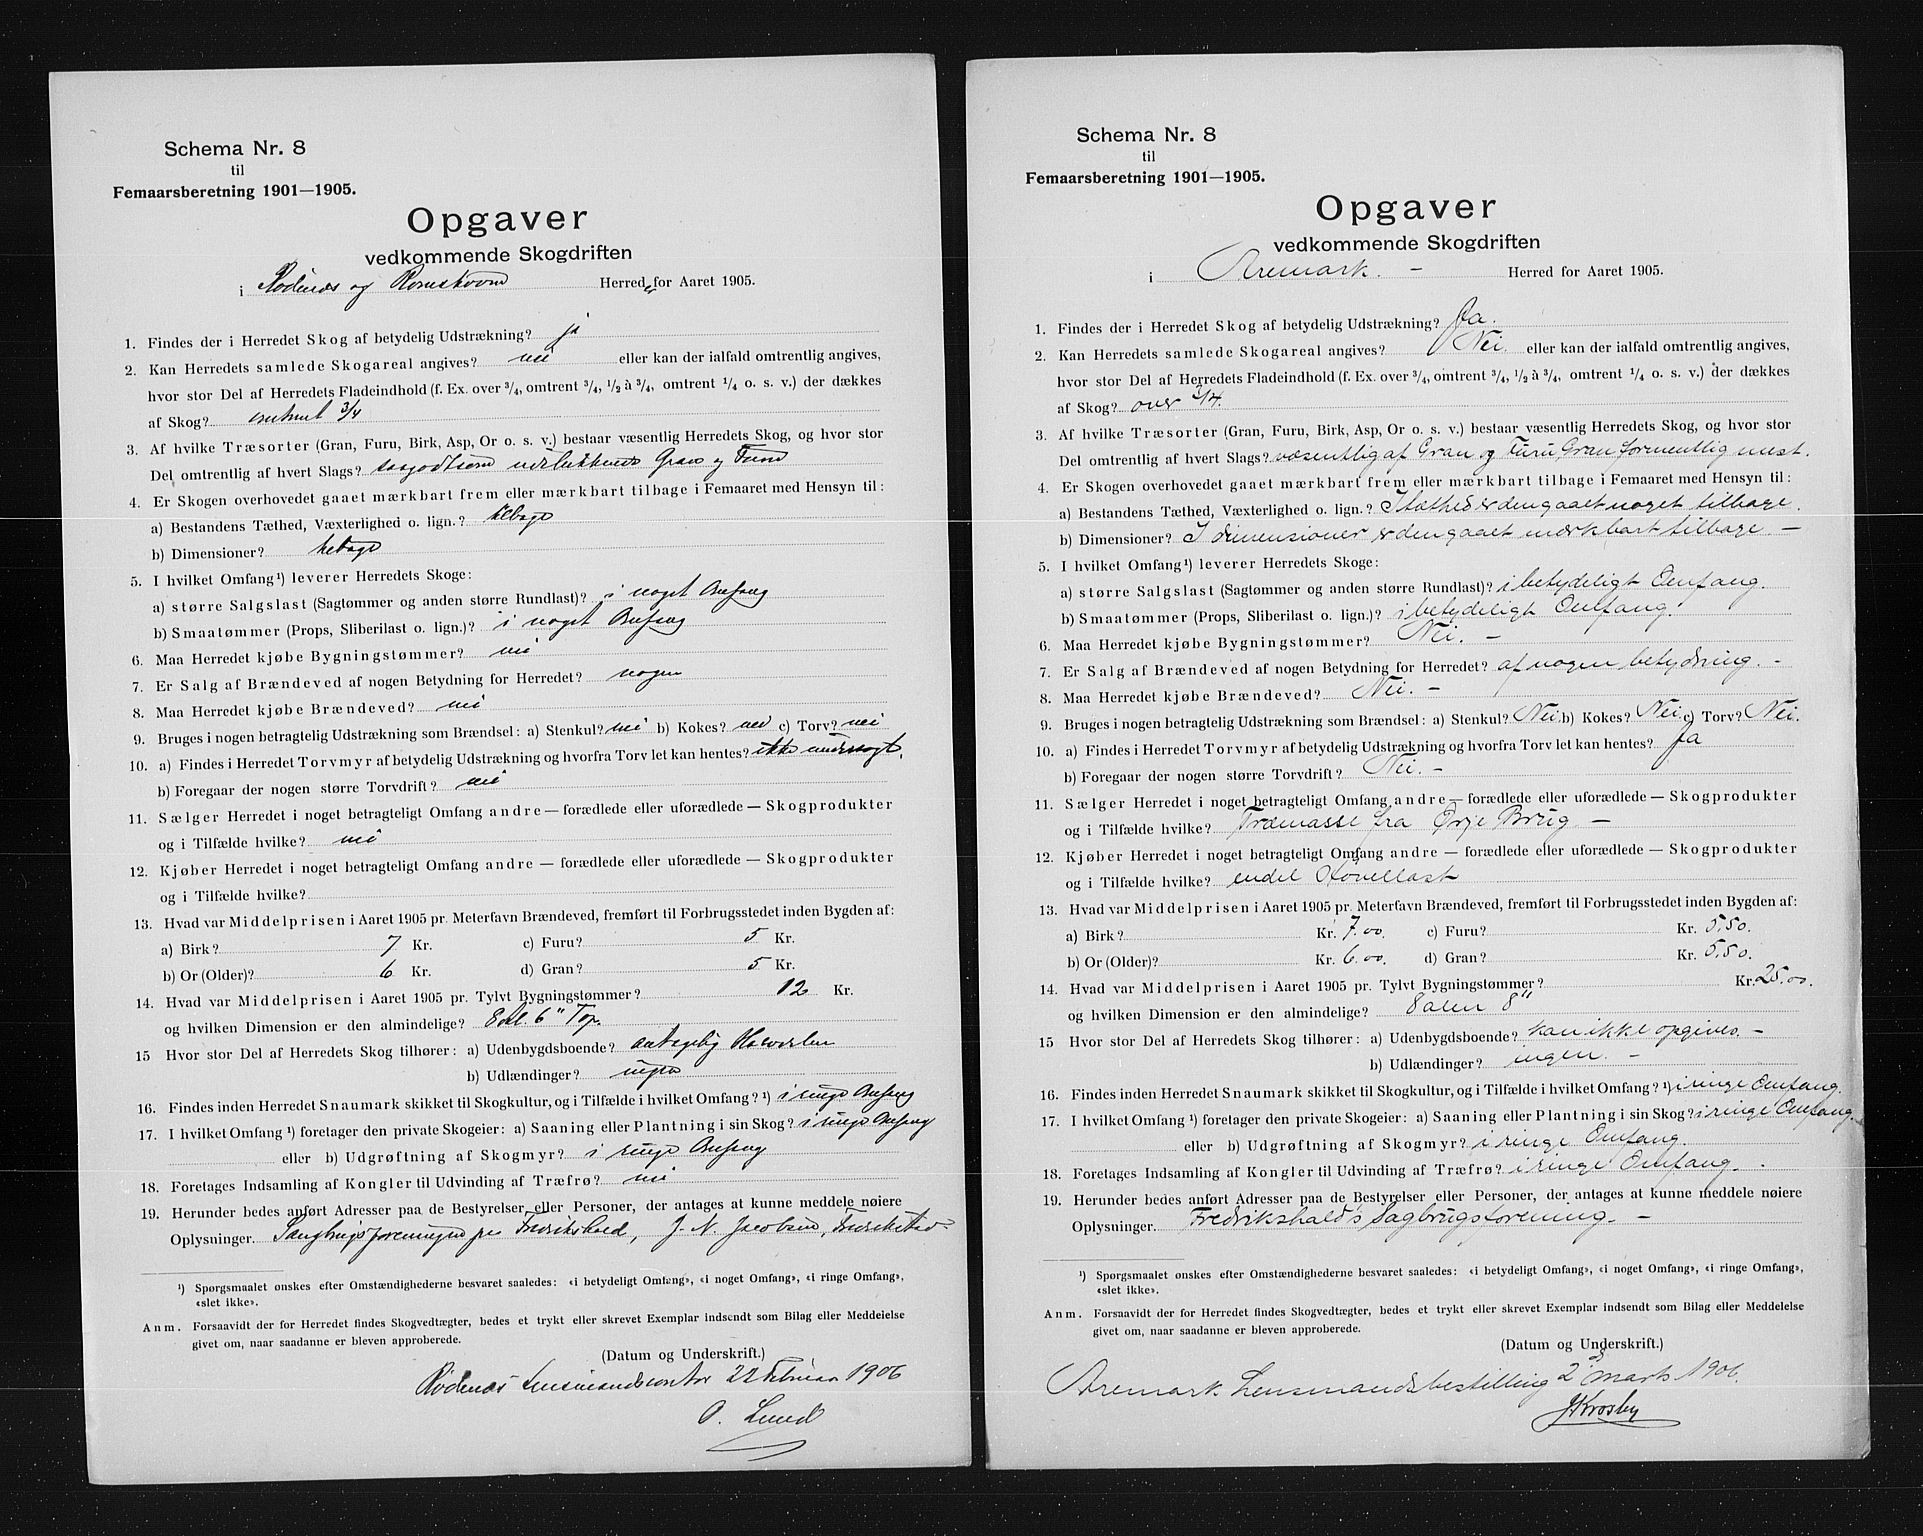 Schema Nr. 8
til
Femaarsberetning 1901—1905.
Opgaver
vedkommende Skogdriften
i Rødenes og Romskoven Herreder for Aaret 1905.
1. Findes der i Herredet Skog af betydelig Udstrækning? ja
2. Kan Herredets samlede Skogareal angives? nei eller kan der ialfald omtrentlig angives,
hvor stor Del af Herredets Fladeindhold (f. Ex. over 3/4, omtrent 3/4, 1/2 à 3/4, omtrent 1/4 o. s. v.) der dækkes
af Skog? omtrent 3/4
3. Af hvilke Træsorter (Gran, Furu, Birk, Asp, Or o. s. v.) bestaar væsentlig Herredets Skog, og hvor stor
Del omtrentlig af hvert Slags? saagodtsom udelukkende Gran og Furu
4. Er Skogen overhovedet gaaet mærkbart frem eller mærkbart tilbage i Femaaret med Hensyn til:
a) Bestandens Tæthed, Væxterlighed o. lign.? tilbage
b) Dimensioner? tilbage
5. I hvilket Omfang¹) leverer Herredets Skoge:
a) større Salgslast (Sagtømmer og anden større Rundlast)? i noget Omfang
b) Smaatømmer (Props, Sliberilast o. lign.)? i noget Omfang
6. Maa Herredet kjøbe Bygningstømmer? nei
7. Er Salg af Brændeved af nogen Betydning for Herredet? nogen
8. Maa Herredet kjøbe Brændeved? nei
9. Bruges i nogen betragtelig Udstrækning som Brændsel: a) Stenkul? nei b) Kokes? nei c) Torv? nei
10. a) Findes i Herredet Torvmyr af betydelig Udstrækning og hvorfra Torv let kan hentes? ikke undersøgt.
b) Foregaar der nogen større Torvdrift? nei
11. Sælger Herredet i noget betragteligt Omfang andre — forædlede eller uforædlede — Skogprodukter
og i Tilfælde hvilke? nei
12. Kjøber Herredet i noget betragteligt Omfang andre — forædlede eller uforædlede — Skogprodukter
og i Tilfælde hvilke?
13. Hvad var Middelprisen i Aaret 1905 pr. Meterfavn Brændeved, fremført til Forbrugsstedet inden Bygden af:
a) Birk? 7 Kr. c) Furu? 5 Kr.
b) Or (Older)? 6 Kr. d) Gran? 5 Kr.
14. Hvad var Middelprisen i Aaret 1905 pr. Tylvt Bygningstømmer? 12 Kr.
og hvilken Dimension er den almindelige? 8 al. 6" Top.
15 Hvor stor Del af Herredets Skog tilhører: a) Udenbygdsboende? antagelig Halvdelen
b) Udlændinger? ingen
16. Findes inden Herredet Snaumark skikket til Skogkultur, og i Tilfælde i hvilket Omfang? ¹) i ringe Omfang
17. I hvilket Omfang ¹) foretager den private Skogeier: a) Saaning eller Plantning i sin Skog? i ringe Omfang
eller b) Udgrøftning af Skogmyr? i ringe Omfang
18. Foretages Indsamling af Kongler til Udvinding af Træfrø? nei
19. Herunder bedes anført Adresser paa de Bestyrelser eller Personer, der antages at kunne meddele nøiere
Oplysninger. Saugbrugsforeningen pr Fredrikshald, J. N. Jacobsen, Fredrikstad
¹) Spørgsmaalet ønskes efter Omstændighederne besvaret saaledes: «i betydeligt Omfang», «i noget Omfang», «i ringe Omfang»,
«slet ikke».
Anm. Forsaavidt der for Herredet findes Skogvedtægter, bedes et trykt eller skrevet Exemplar indsendt som Bilag eller Meddelelse
givet om, naar saadanne er bleven approberede.
(Datum og Underskrift.)
Rødenes Lensmandscontor 22 Februar 1906
O. Lund
Schema Nr. 8
til
Femaarsberetning 1901—1905.
Opgaver
vedkommende Skogdriften
i Aremark. – Herred for Aaret 1905.
1. Findes der i Herredet Skog af betydelig Udstrækning? Ja.
2. Kan Herredets samlede Skogareal angives? Nei. eller kan der ialfald omtrentlig angives,
hvor stor Del af Herredets Fladeindhold (f. Ex. over 3/4, omtrent 3/4, 1/2 à 3/4, omtrent 1/4 o. s. v.) der dækkes
af Skog? over 3/4.
3. Af hvilke Træsorter (Gran, Furu, Birk, Asp, Or o. s. v.) bestaar væsentlig Herredets Skog, og hvor stor
Del omtrentlig af hvert Slags? væsentlig af Gran og Furu, Gran formentlig mest.
4. Er Skogen overhovedet gaaet mærkbart frem eller mærkbart tilbage i Femaaret med Hensyn til:
a) Bestandens Tæthed, Væxterlighed o. lign.? I tæthed er den gaaet noget tilbage.
b) Dimensioner? I dimensioner er den gaaet mærkbart tilbage. –
5. I hvilket Omfang¹) leverer Herredets Skoge:
a) større Salgslast (Sagtømmer og anden større Rundlast)? i betydeligt Omfang.
b) Smaatømmer (Props, Sliberilast o. lign.)? i betydeligt Omfang.
6. Maa Herredet kjøbe Bygningstømmer? Nei. –
7. Er Salg af Brændeved af nogen Betydning for Herredet? af nogen betydning. –
8. Maa Herredet kjøbe Brændeved? Nei. –
9. Bruges i nogen betragtelig Udstrækning som Brændsel: a) Stenkul? Nei. b) Kokes? Nei. c) Torv? Nei.
10. a) Findes i Herredet Torvmyr af betydelig Udstrækning og hvorfra Torv let kan hentes? Ja
b) Foregaar der nogen større Torvdrift? Nei. –
11. Sælger Herredet i noget betragteligt Omfang andre — forædlede eller uforædlede — Skogprodukter
og i Tilfælde hvilke? Træmasse fra Ørje Brug –
12. Kjøber Herredet i noget betragteligt Omfang andre — forædlede eller uforædlede — Skogprodukter
og i Tilfælde hvilke? endel Høvellast
13. Hvad var Middelprisen i Aaret 1905 pr. Meterfavn Brændeved, fremført til Forbrugsstedet inden Bygden af:
a) Birk? Kr. 7.00. c) Furu? Kr. 5.50.
b) Or (Older)? Kr. 6.00. d) Gran? Kr. 5.50.
14. Hvad var Middelprisen i Aaret 1905 pr. Tylvt Bygningstømmer? Kr. 25.00
og hvilken Dimension er den almindelige? 8 alen 8"
15 Hvor stor Del af Herredets Skog tilhører: a) Udenbygdsboende? kan ikke opgives. –
b) Udlændinger? ingen. –
16. Findes inden Herredet Snaumark skikket til Skogkultur, og i Tilfælde i hvilket Omfang? ¹) i ringe Omfang.
17. I hvilket Omfang ¹) foretager den private Skogeier: a) Saaning eller Plantning i sin Skog? i ringe Omfang.
eller b) Udgrøftning af Skogmyr? i ringe Omfang.
18. Foretages Indsamling af Kongler til Udvinding af Træfrø? i ringe Omfang.
19. Herunder bedes anført Adresser paa de Bestyrelser eller Personer, der antages at kunne meddele nøiere
Oplysninger. Fredrikshald's Sagbrugsforening. –
¹) Spørgsmaalet ønskes efter Omstændighederne besvaret saaledes: «i betydeligt Omfang», «i noget Omfang», «i ringe Omfang»,
«slet ikke».
Anm. Forsaavidt der for Herredet findes Skogvedtægter, bedes et trykt eller skrevet Exemplar indsendt som Bilag eller Meddelelse
givet om, naar saadanne er bleven approberede.
(Datum og Underskrift.)
Aremark Lensmandsbestilling 2 marts 1906.
JKrosby